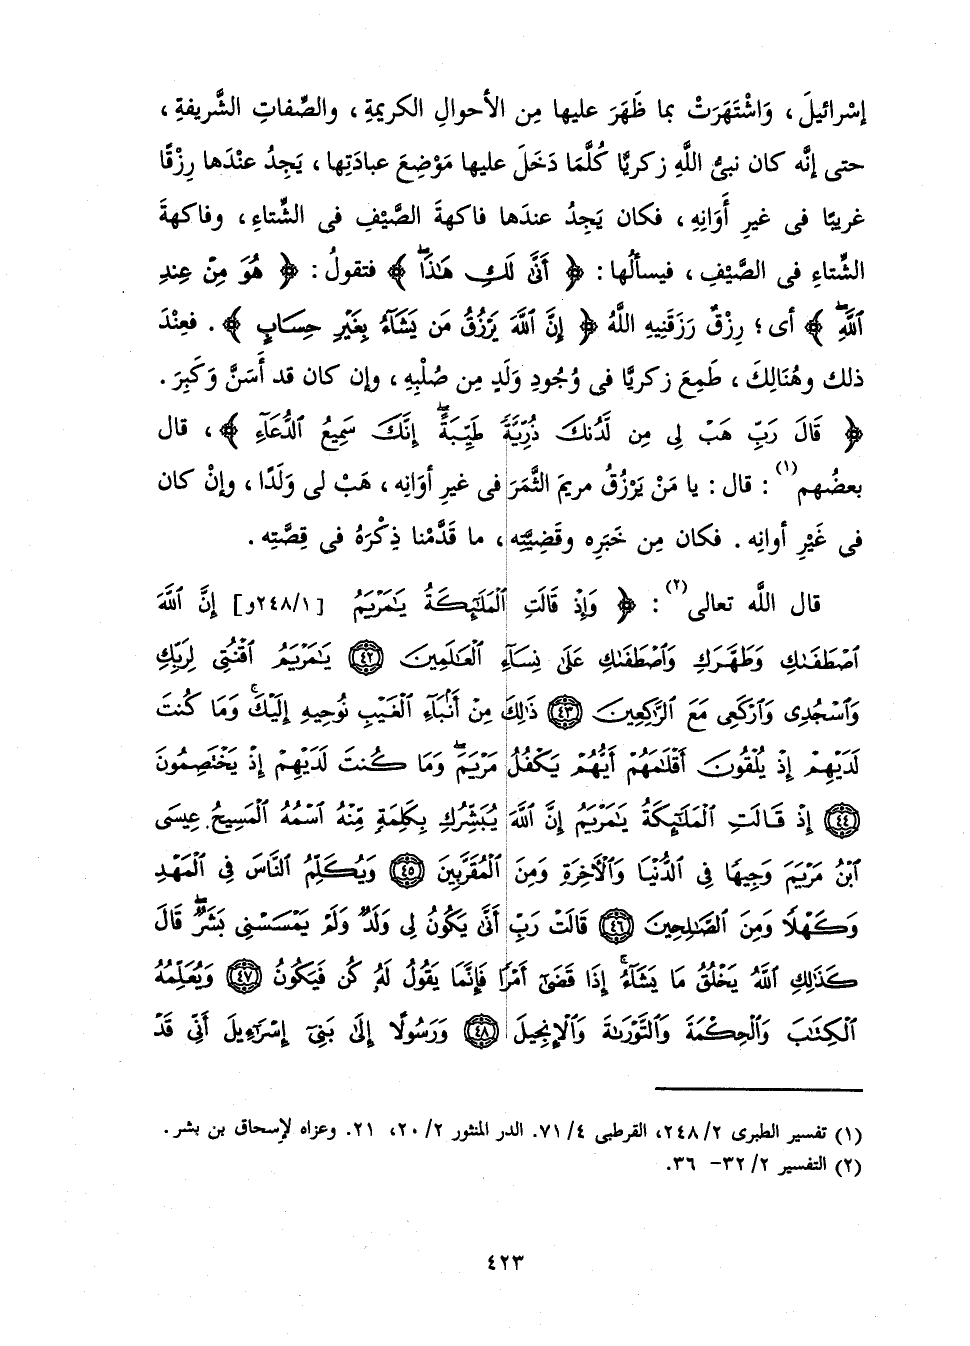 إسْرائيلَ ، وَاشْتَهَرَتْ بما ظَهَرَ عليها مِن الأحوالِ الكريمةِ ، والصِّفاتِ الشَّريفةِ ،
حتى إنَّه كان نبىُّ اللَّهِ زكريَّا كُلَّمَا دَخَلَ عليها مَوْضِعَ عبادَتِها ، يَجِدُ عنْدَها رِزْقًا
غريبًا فى غيرِ أَوَانِهِ ، فكان يَجِدُ عندَها فاكهةَ الصَّيْفِ فى الشِّتاءِ ، وفاكهةَ
الشِّتاءِ فى الصَّيْفِ ، فيسألُها : ﴿ أَنَّىٰ لَكِ هَٰذَاۖ ﴾ فتقولُ : ﴿ هُوَ مِنْ عِندِ
ٱللَّهِۖ ﴾ أى ؛ رِزْقٌ رَزَقَنِيهِ اللَّهُ ﴿ إِنَّ ٱللَّهَ يَرْزُقُ مَن يَشَآءُ بِغَيْرِ حِسَابٍ ﴾ . فعِنْدَ
ذلك وهُنَالِكَ ، طَمِعَ زكريَّا فى وُجُودِ وَلَدٍ مِن صُلْبِهِ ، وإن كان قد أَسَنَّ وَكَبِرَ .
﴿ قَالَ رَبِّ هَبْ لِى مِن لَّدُنكَ ذُرِّيَّةً طَيِّبَةًۖ إِنَّكَ سَمِيعُ ٱلدُّعَآءِ ﴾ ، قال
بعضُهم(١) : قال : يا مَنْ يَرْزُقُ مريمَ الثَّمَرَ فى غيرِ أوَانِه ، هَبْ لى وَلَدًا ، وإنْ كان
فى غَيْرِ أوانِه . فكان مِن خَبَرِه وقَضِيَّتِه ، ما قَدَّمْنا ذِكْرَهُ فى قِصَّتِه .
قال اللَّه تعالى(٢) : ﴿ وَإِذْ قَالَتِ ٱلْمَلَٰٓئِكَةُ يَٰمَرْيَمُ [٢٤٨/١و] إِنَّ ٱللَّهَ
ٱصْطَفَىٰكِ وَطَهَّرَكِ وَٱصْطَفَىٰكِ عَلَىٰ نِسَآءِ ٱلْعَٰلَمِينَ ٤٢ يَٰمَرْيَمُ ٱقْنُتِى لِرَبِّكِ
وَٱسْجُدِى وَٱرْكَعِى مَعَ ٱلرَّٰكِعِينَ ٤٣ ذَٰلِكَ مِنْ أَنۢبَآءِ ٱلْغَيْبِ نُوحِيهِ إِلَيْكَۚ وَمَا كُنتَ
لَدَيْهِمْ إِذْ يُلْقُونَ أَقْلَٰمَهُمْ أَيُّهُمْ يَكْفُلُ مَرْيَمَۖ وَمَا كُنتَ لَدَيْهِمْ إِذْ يَخْتَصِمُونَ
٤٤ إِذْ قَالَتِ ٱلْمَلَٰٓئِكَةُ يَٰمَرْيَمُ إِنَّ ٱللَّهَ يُبَشِّرُكِ بِكَلِمَةٍ مِّنْهُ ٱسْمُهُ ٱلْمَسِيحُ عِيسَى
ٱبْنُ مَرْيَمَ وَجِيهًا فِى ٱلدُّنْيَا وَٱلْءَاخِرَةِ وَمِنَ ٱلْمُقَرَّبِينَ ٤٥ وَيُكَلِّمُ ٱلنَّاسَ فِى ٱلْمَهْدِ
وَكَهْلًا وَمِنَ ٱلصَّٰلِحِينَ ٤٦ قَالَتْ رَبِّ أَنَّىٰ يَكُونُ لِى وَلَدٌ وَلَمْ يَمْسَسْنِى بَشَرٌۖ قَالَ
كَذَٰلِكِ ٱللَّهُ يَخْلُقُ مَا يَشَآءُۚ إِذَا قَضَىٰٓ أَمْرًا فَإِنَّمَا يَقُولُ لَهُۥ كُن فَيَكُونُ ٤٧ وَيُعَلِّمُهُ
ٱلْكِتَٰبَ وَٱلْحِكْمَةَ وَٱلتَّوْرَىٰةَ وَٱلْإِنجِيلَ ٤٨ وَرَسُولًا إِلَىٰ بَنِىٓ إِسْرَٰٓءِيلَ أَنِّى قَدْ
(١) تفسير الطبرى ٢٤٨/٢، القرطبى ٧١/٤. الدر المنثور ٢٠/٢، ٢١. وعزاه لإسحاق بن بشر.
(٢) التفسير ٣٢/٢- ٣٦.
٤٢٣